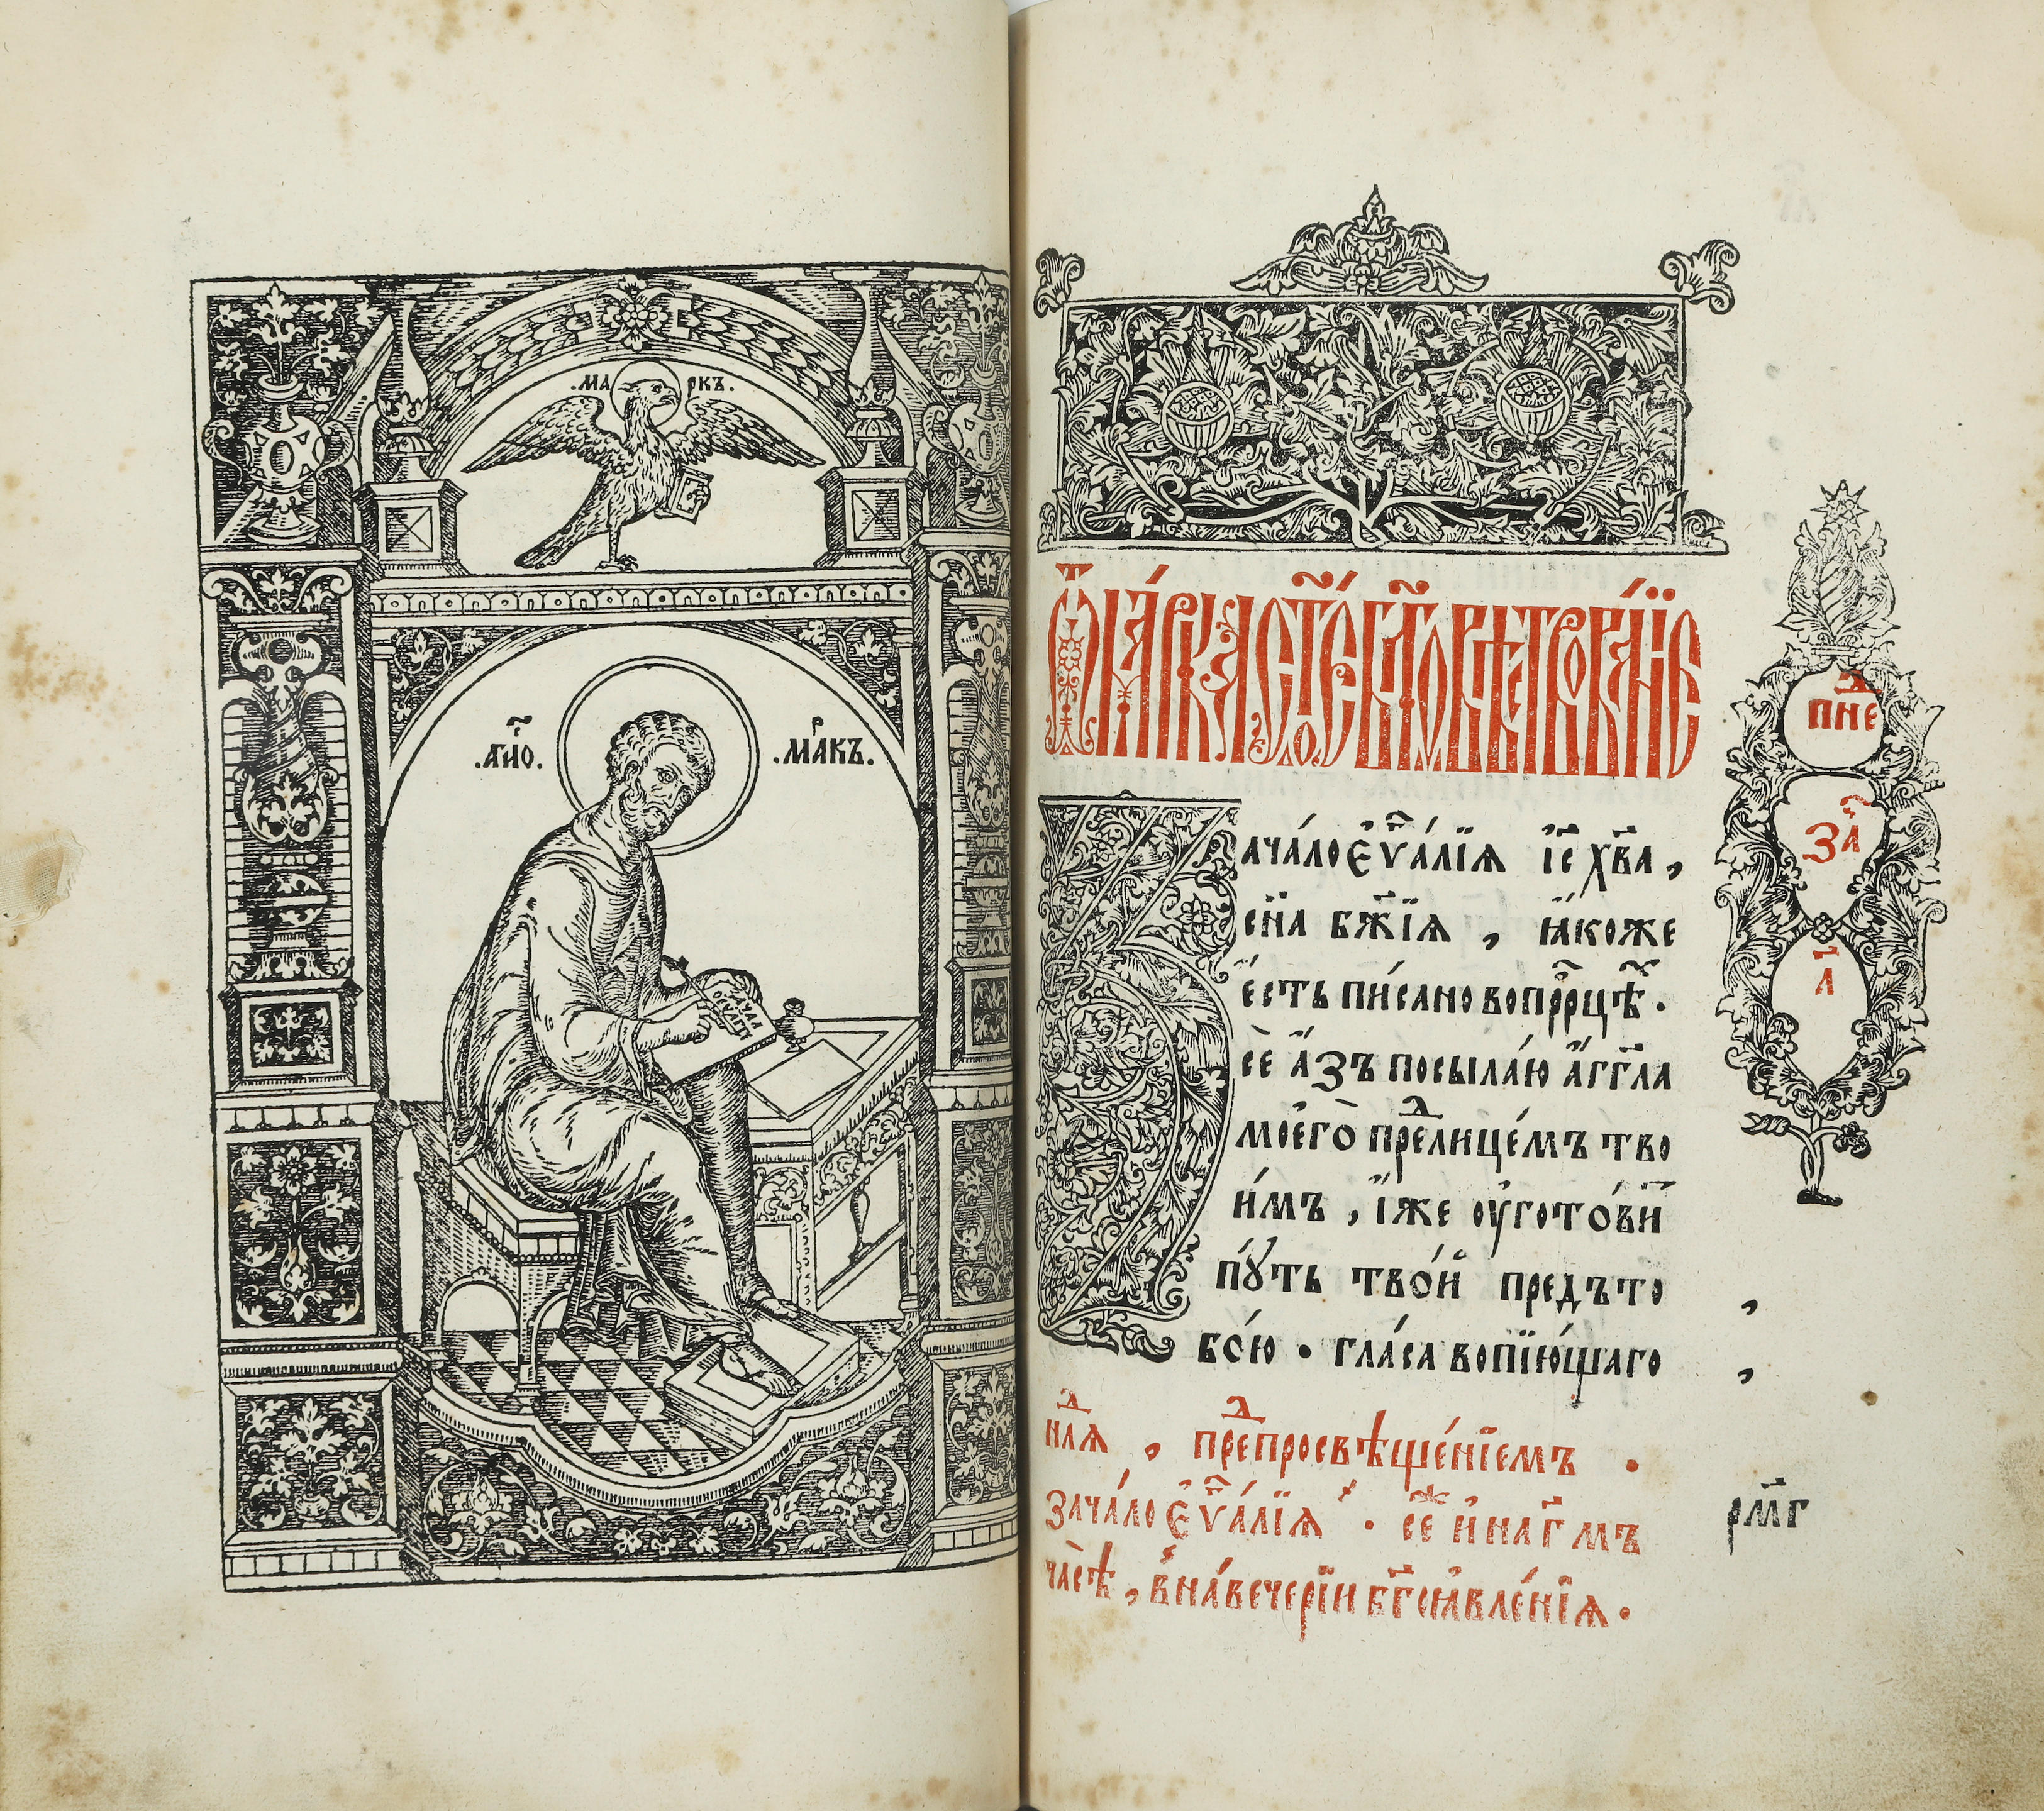 .МА РКЪ.
.а҆гїо. .ма́ркъ.
Ѿ ма́рка ст҃о́е бл҃говѣствова́нїе
пнⷣе
за҃
а҃
Зача́ло є҆ѵⷢ҇а́лїѧ і҆с҃ хв҃а,
сн҃а бж҃їѧ, ꙗ҆́коже
є҆́сть пи́сано во прⷪ҇рцѣ.
сѐ а҆́зъ посыла́ю а҆́гг҃ла
моегѡ̀ преⷣлице́мъ тво
и́мъ, и҆́же ᲂу҆гото́витъ
пꙋ́ть тво́й предъ то
бо́ю. гла́са вопїю́щаго
нⷣлѧ, преⷣпросвѣще́нїемъ.
зача́ло є҆ѵⷢ҇а́лїѧ. се́ и҆ на г҃мъ
часѣ̀, в наве́черїи бг҃оꙗвле́нїѧ.
рм҃г